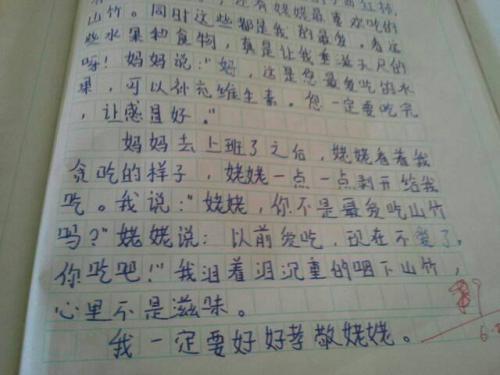 还有姥姥最喜欢吃的
山竹。同时这些都是我的最爱，看这
些水果和食物，真是让我垂涎三尺
呀！妈妈说："妈，这是您最爱吃的水
果，可以补充维生素。您一定要吃完
，让感冒好。"
妈妈去上班了之后，姥姥看着我
贪吃的样子，姥姥一点一点剥开给我
吃。我说："姥姥，你不是最爱吃山竹
吗？"姥姥说：以前爱吃，现在不爱了。
你吃吧！"我泪着泪沉重的咽下山竹，
心里不是滋味。
我一定要好好孝敬姥姥。